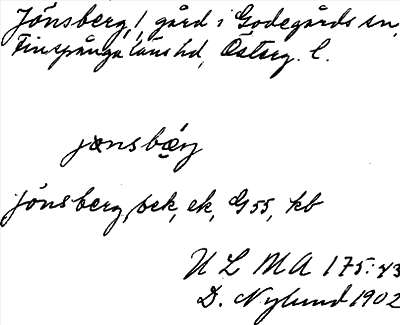 Jönsberg, 1 gård i Godegårds sn,
Finspånga läns hd, Österg. l.
jönsbærg
Jönsberg, sek, ek, G55, kb
U L M A 175:43
D. Nylund 1902